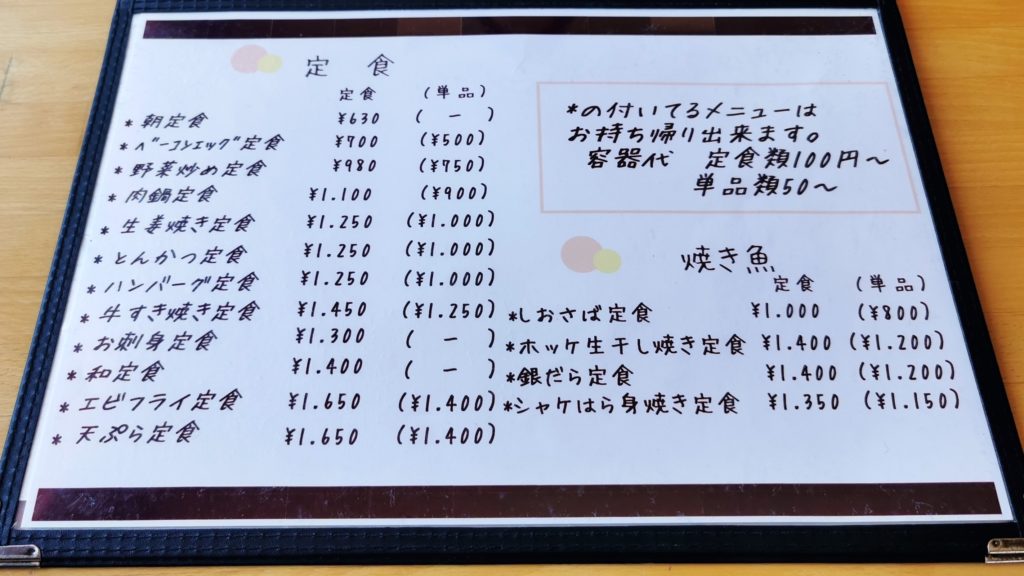 定食
定食 (単品)
*朝定食 ¥630 (ー)
*ベーコンエッグ定食 ¥700 (¥500)
*野菜炒め定食 ¥980 (¥750)
*肉鍋定食 ¥1.100 (¥900)
*生姜焼き定食 ¥1.250 (¥1.000)
*とんかつ定食 ¥1.250 (¥1.000)
*ハンバーグ定食 ¥1.250 (¥1.000)
*牛すき焼き定食 ¥1.450 (¥1.250)
*お刺身定食 ¥1.300 (ー)
*和定食 ¥1.400 (ー)
*エビフライ定食 ¥1.650 (¥1.400)
*天ぷら定食 ¥1.650 (¥1.400)
*の付いてるメニューは
お持ち帰り出来ます。
容器代 定食類100円〜
単品類50〜
焼き魚
定食 (単品)
*しおさば定食 ¥1.000 (¥800)
*ホッケ生干し焼き定食 ¥1.400 (¥1.200)
*銀だら定食 ¥1.400 (¥1.200)
*シャケはら身焼き定食 ¥1.350 (¥1.150)